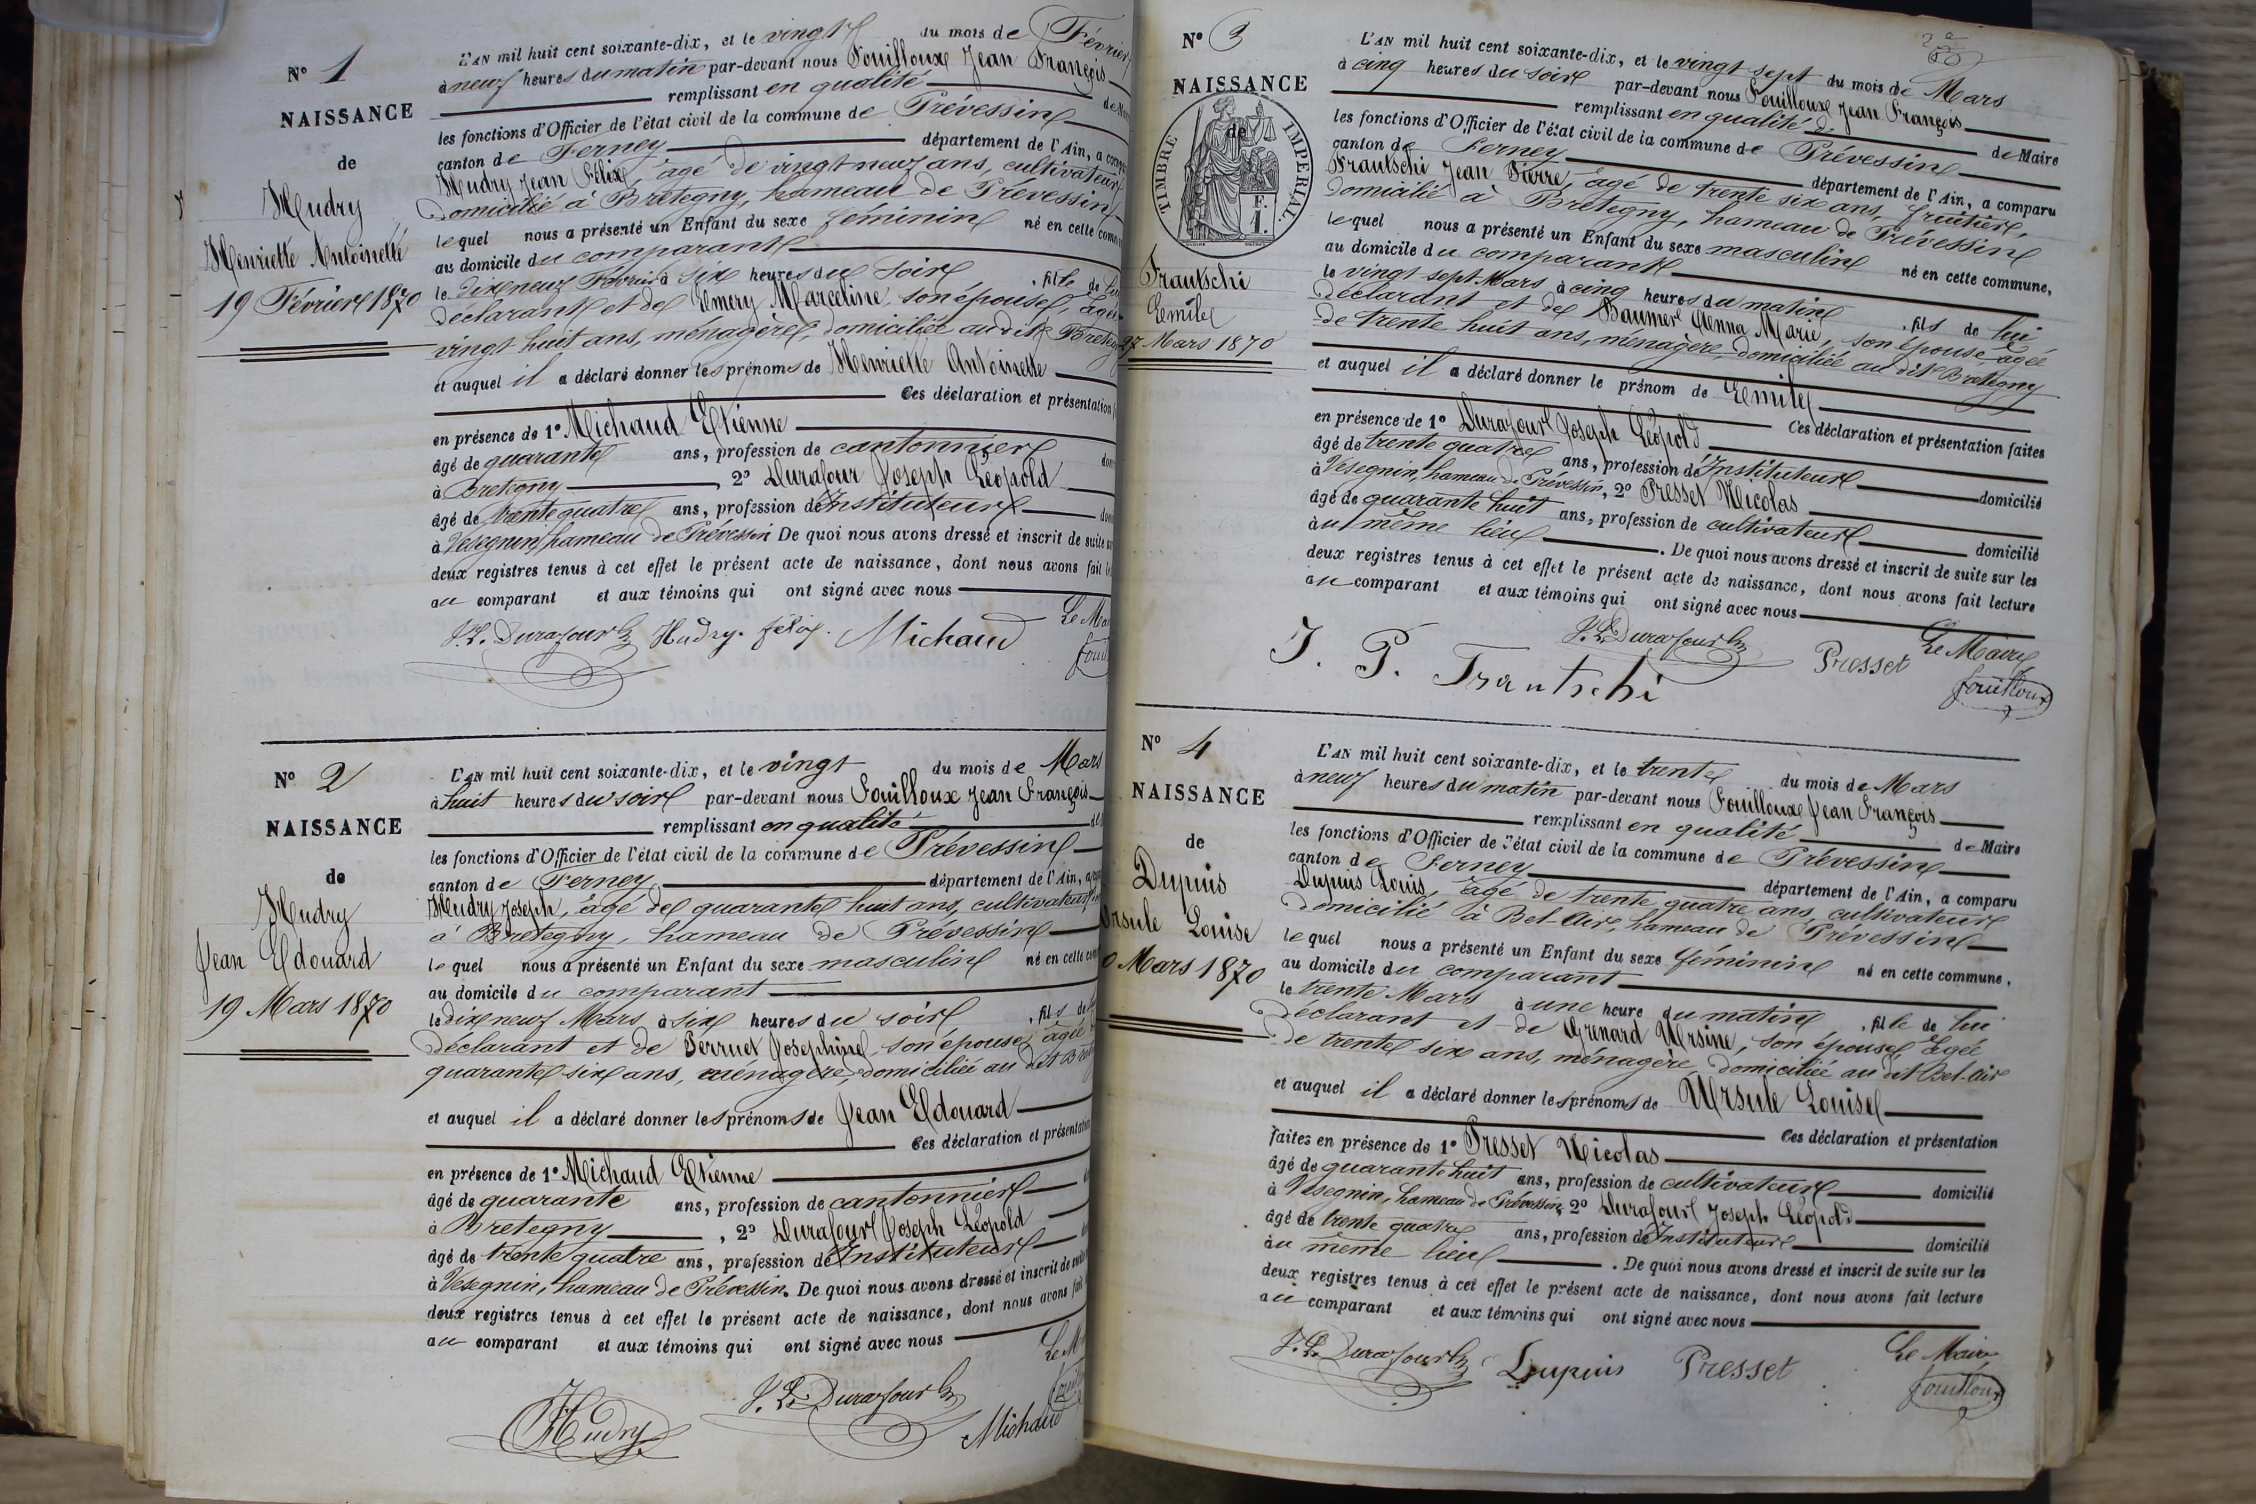 N° 1
NAISSANCE
de
Hudry
Henriette Antoinette
19 Février 1870
L'AN mil huit cent soixante-dix, et le vingt du mois de Février
à neuf heures du matin par-devant nous Fouilloux Jean François
remplissant en qualité
les fonctions d'Officier de l'état civil de la commune de Prévessin
canton de Ferney département de l'Ain, a
Hudry Jean Félix, âgé de vingt neuf ans, cultivateur
domicilié à Bretegny, hameau de Prévessin
lequel nous a présenté un Enfant du sexe féminin né en cette
au domicile du comparant
le dix neuf Février à six heures du soir, fille de lui
déclarant et de Emery Marceline son épouse, âgée
vingt huit ans, ménagère, domiciliée au dit
et auquel il a déclaré donner les prénoms de Henriette Antoinette
Ces déclaration et présentation
en présence de 1° Michaud Etienne
âgé de quarante ans, profession de cantonnier
à Bretegny, 2° Durafour Joseph Léopold
âgé de trente quatre ans, profession de Instituteur
à Vesegnin, hameau de Prévessin De quoi nous avons dressé et inscrit de suite
deux registres tenus à cet effet le présent acte de naissance, dont nous avons fait
au comparant et aux témoins qui ont signé avec nous
J. L. Durafour Hudry félix. Michaud
N° 2
NAISSANCE
de
Hudry
Jean Edouard
19 Mars 1870
L'AN mil huit cent soixante-dix, et le vingt du mois de Mars
à huit heures du soir par-devant nous Fouilloux Jean François
remplissant en qualité
les fonctions d'Officier de l'état civil de la commune de Prévessin
canton de Ferney département de l'Ain, a
Hudry Joseph, âgé de quarante huit ans, cultivateur
à Bretegny, hameau de Prévessin
lequel nous a présenté un Enfant du sexe masculin né en cette
au domicile du comparant
le dix neuf Mars à six heures du soir, fils de
déclarant et de Perruet Josephine, son épouse, âgée
quarante six ans, ménagère, domiciliée au dit
et auquel il a déclaré donner les prénoms de Jean Edouard
Ces déclaration et présentation
en présence de 1° Michaud Etienne
âgé de quarante ans, profession de cantonnier
à Bretegny, 2° Durafour Joseph Léopold
âgé de trente quatre ans, profession de Instituteur
à Vesegnin, hameau de Prévessin. De quoi nous avons dressé et inscrit de suite
deux registres tenus à cet effet le présent acte de naissance, dont nous avons fait
au comparant et aux témoins qui ont signé avec nous
Hudry J. L. Durafour Michaud
N° 3
NAISSANCE
de
TIMBRE IMPERIAL
F.
1.
Frautschi
Emile
27 Mars 1870
L'AN mil huit cent soixante-dix, et le vingt sept du mois de Mars
à cinq heures du soir par-devant nous Fouilloux Jean François
remplissant en qualité de Maire
les fonctions d'Officier de l'état civil de la commune de Prévessin
canton de Ferney département de l'Ain, a comparu
Frautschi Jean Pierre, âgé de trente six ans, fruitier,
domicilié à Bretigny, hameau de Prévessin
lequel nous a présenté un Enfant du sexe masculin né en cette commune,
au domicile du comparant
le vingt sept Mars à cinq heures du matin, fils de lui
déclarant et de Baumer Anna Marie, son épouse, âgée
de trente huit ans, ménagère, domiciliée au dit Bretegny
et auquel il a déclaré donner le prénom de Emile
Ces déclaration et présentation faites
en présence de 1° Durafour Joseph Léopold
âgé de trente quatre ans, profession de Instituteur domicilié
à Vesegnin, hameau de Prévessin, 2° Presset Nicolas
âgé de quarante huit ans, profession de cultivateur domicilié
au même lieu. De quoi nous avons dressé et inscrit de suite sur les
deux registres tenus à cet effet le présent acte de naissance, dont nous avons fait lecture
au comparant et aux témoins qui ont signé avec nous
J. P. Frautschi J. L. Durafour Presset Le Maire
fouilloux
N° 4
NAISSANCE
de
Dupuis
Ursule Louise
Mars 1870
L'AN mil huit cent soixante-dix, et le trente du mois de Mars
à neuf heures du matin par-devant nous Fouilloux Jean François
remplissant en qualité de Maire
les fonctions d'Officier de l'état civil de la commune de Prévessin
canton de Ferney département de l'Ain, a comparu
Dupuis Louis, âgé de trente quatre ans, cultivateur
domicilié à Bel-Air, hameau de Prévessin
lequel nous a présenté un Enfant du sexe féminin né en cette commune,
au domicile du comparant
le trente Mars à une heure du matin, fille de lui
déclarant et de Grenard Ursine, son épouse, âgée
de trente six ans, ménagère, domiciliée au dit Bel-Air
et auquel il a déclaré donner les prénoms de Ursule Louise
Ces déclaration et présentation
faites en présence de 1° Presset Nicolas
âgé de quarante huit ans, profession de cultivateur domicilié
à Vesegnin, hameau de Prévessin 2° Durafour Joseph Léopold
âgé de trente quatre ans, profession de Instituteur domicilié
au même lieu. De quoi nous avons dressé et inscrit de suite sur les
deux registres tenus à cet effet le présent acte de naissance, dont nous avons fait lecture
au comparant et aux témoins qui ont signé avec nous
J. L. Durafour Dupuis Presset Le Maire
fouilloux